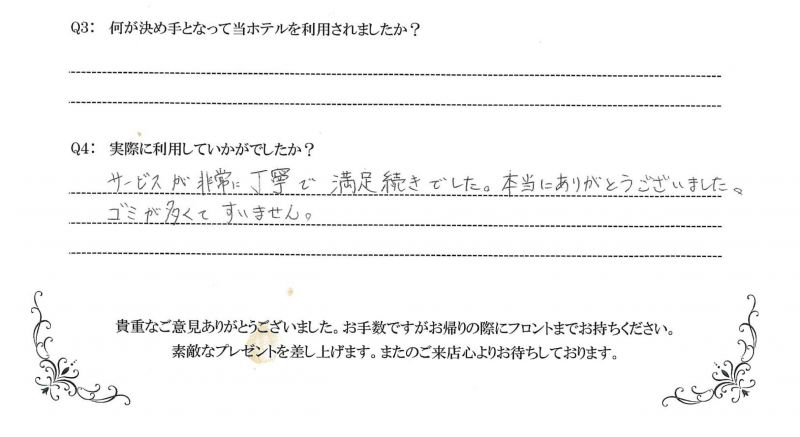 Q3： 何が決め手となって当ホテルを利用されましたか？
Q4： 実際に利用していかがでしたか？
サービスが非常に丁寧で満足続きでした。本当にありがとうございました。
ゴミが多くてすいません。
貴重なご意見ありがとうございました。お手数ですがお帰りの際にフロントまでお持ちください。
素敵なプレゼントを差し上げます。またのご来店心よりお待ちしております。